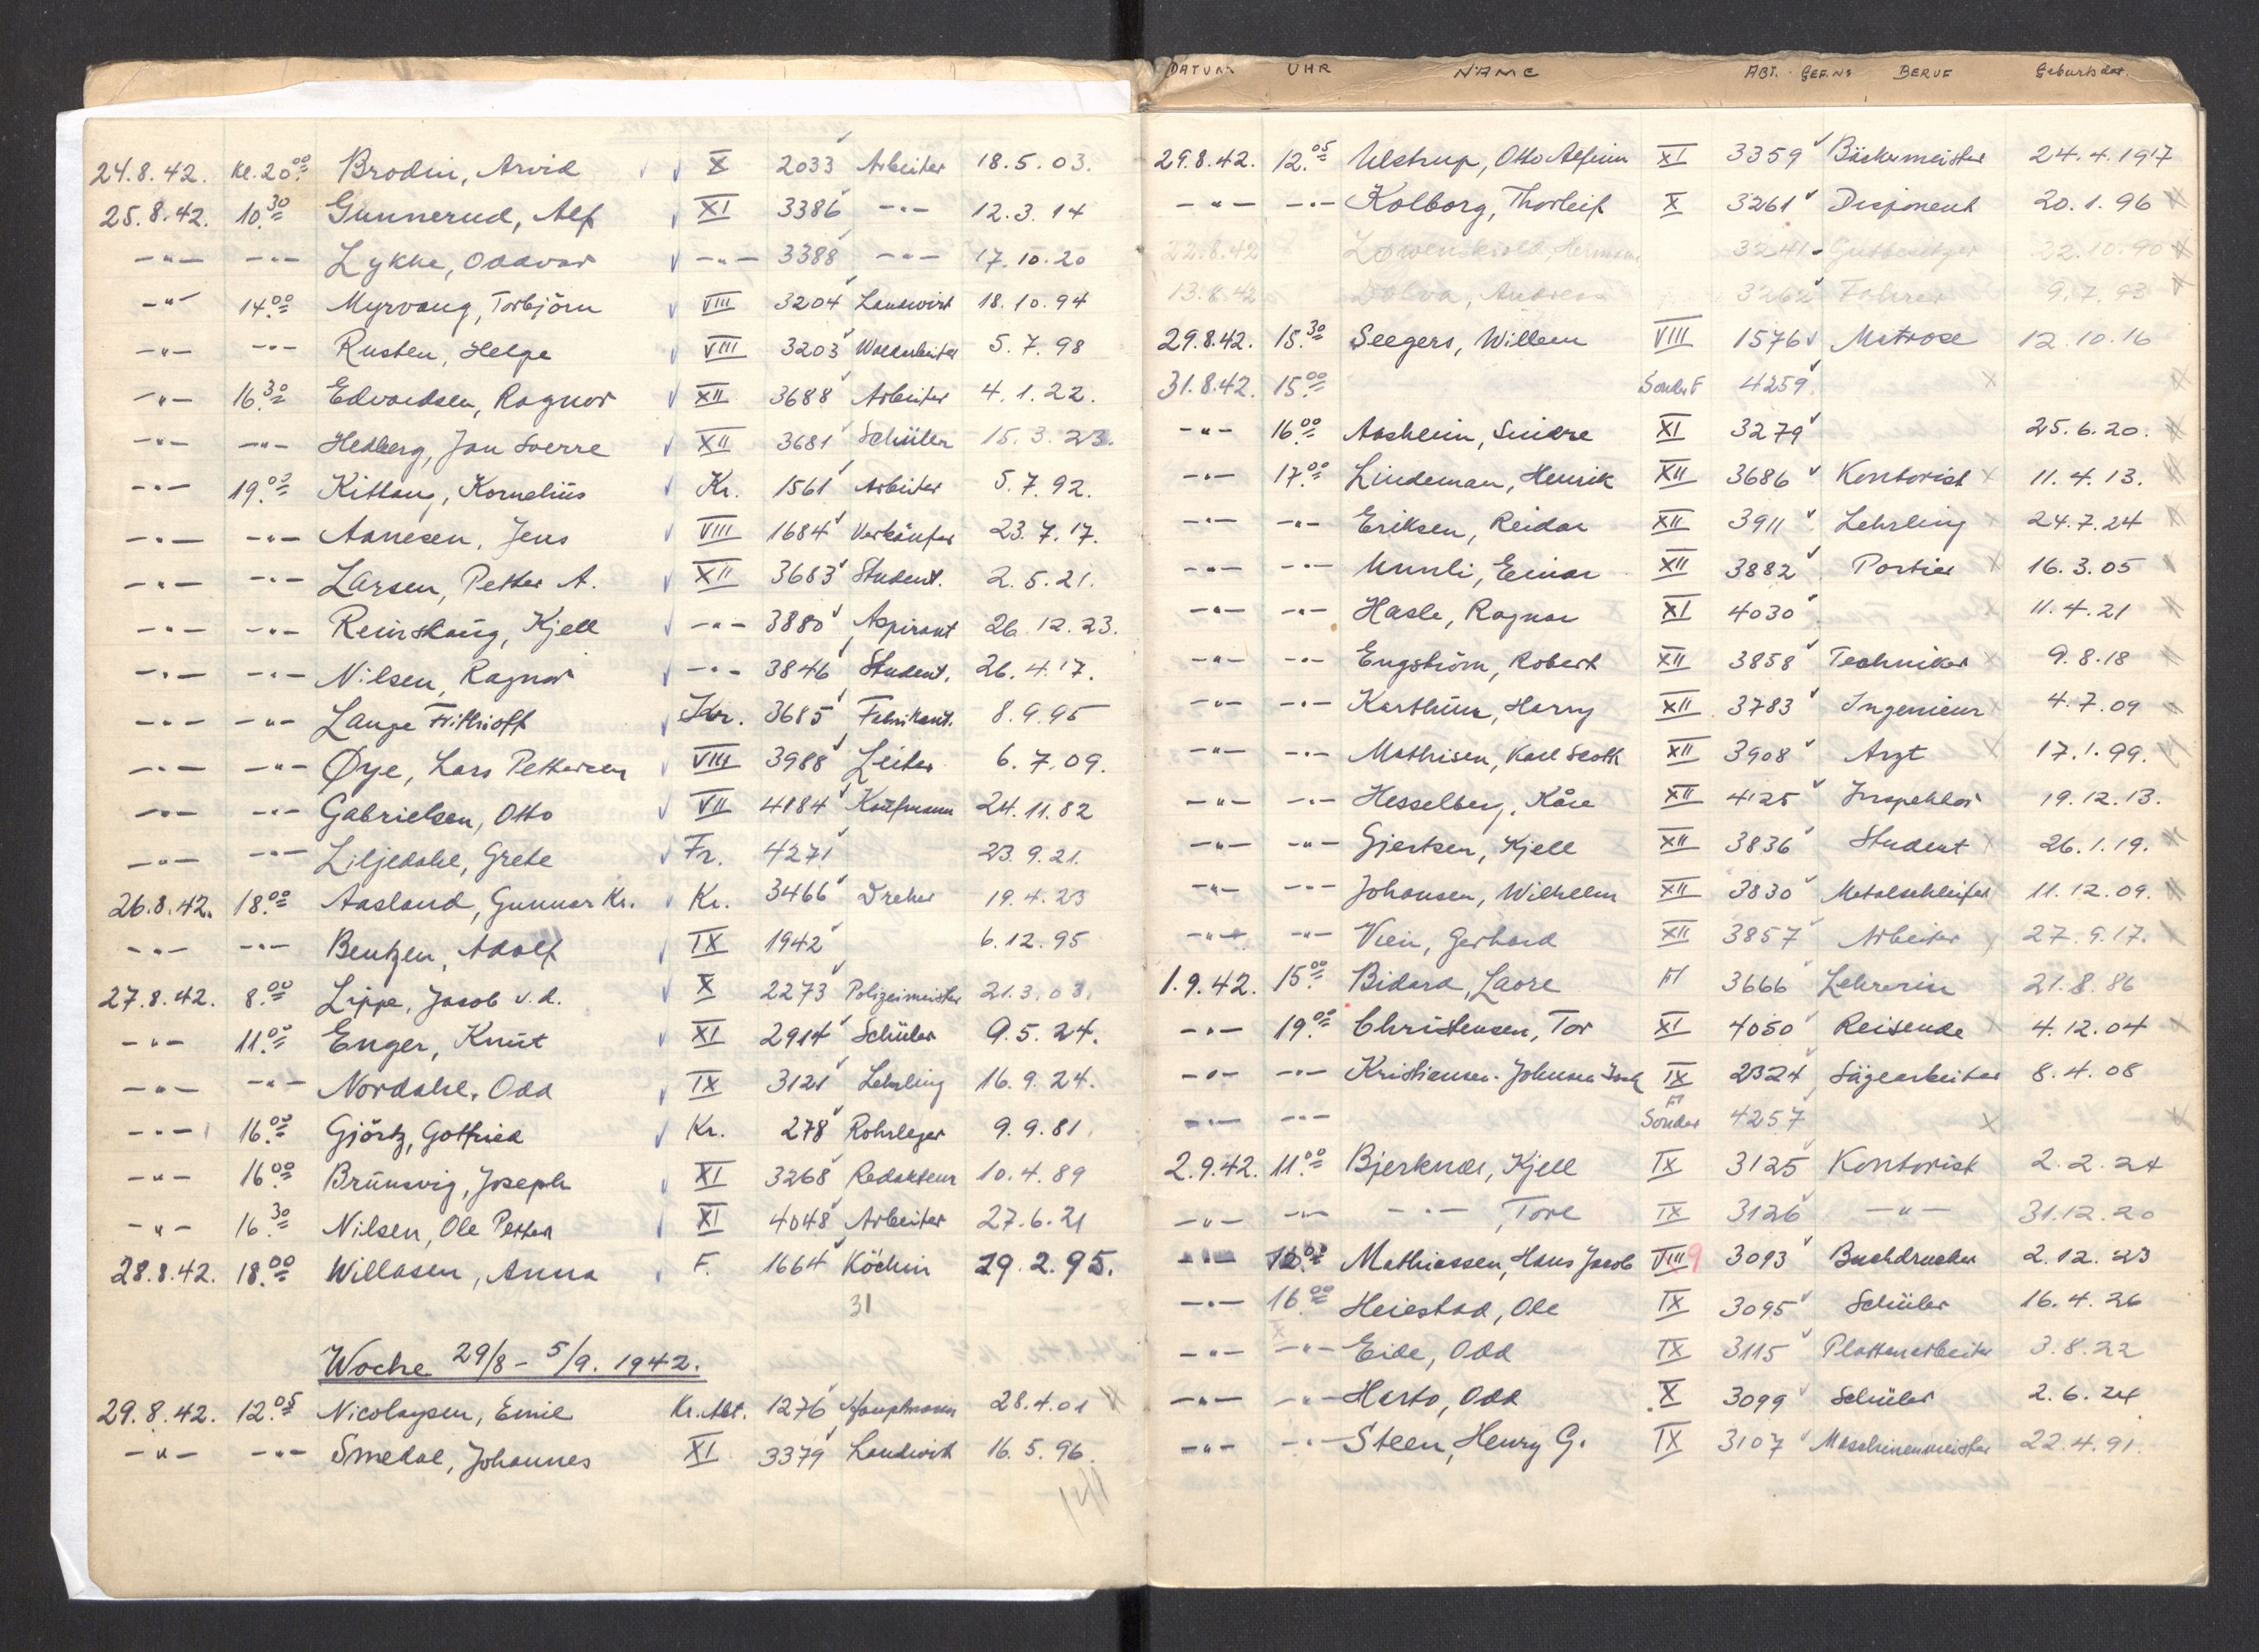 24.8.42. Kl. 20.00 Brodin, Arvid X 2033 Arbeiter 18.5.03.
25.8.42. 10.30 Gunnerud, Alf XI 3386 -"- 12.3.14
-"- -"- Lykke, Oddvar -"- 3388 -"- 17.10.20
-"- 14.00 Myrvang, Torbjörn VIII 3204 Landwirt 18.10.94
-"- -"- Rusten, Helge VIII 3203 Waldarbeiter 5.7.98
-"- 16.30 Edvardsen, Ragnar XII 3688 Arbeiter 4.1.22.
-"- -"- Hedberg, Jan Sverre XII 3681 Schüler 15.3.23.
-"- 19.00 Kittang, Kornelius Kr. 1561 Arbeiter 5.7.92.
-"- -"- Aanesen, Jens VIII 1684 Verkäufer 23.7.17.
-"- -"- Larsen, Petter A. XII 3683 Student. 2.5.21.
-"- -"- Reinskaug, Kjell -"- 3880 Aspirant 26.12.23.
-"- -"- Nilsen, Ragnar -"- 3846 Student. 26.4.17.
-"- -"- Lange Frithioff Kr. 3685 Fabrikant. 8.9.95
-"- -"- Øye, Lars Pettersen VIII 3988 Leiter 6.7.09.
-"- -"- Gabrielsen, Otto VII 4184 Kaufmann 24.11.82
-"- -"- Liljedahl, Grete Fr. 4271 23.9.21.
26.8.42. 18.00 Aasland, Gunnar Kr. Kr. 3466 Dreher 19.4.23
-"- -"- Bentzen, Adolf IX 1942 6.12.95
27.8.42. 8.00 Lippe, Jacob v.d. X 2273 Polizeimeister 21.3.03.
-"- 11.00 Enger, Knut XI 2914 Schüler 9.5.24.
-"- -"- Nordahl, Odd IX 3121 Lehrling 16.9.24.
-"- 16.00 Gjörtz, Gotfried Kr. 278 Rohrleger 9.9.81.
-"- 16.00 Brunsvig, Joseph XI 3268 Redakteur 10.4.89
-"- 16.30 Nilsen, Ole Petter XI 4048 Arbeiter 27.6.21
28.8.42. 18.00 Willasen, Anna F. 1664 Köchin 29.2.95.
31
Woche 29/8 - 5/9. 1942.
29.8.42. 12.05 Nicolaysen, Emil Kr. Abt. 1276 Hauptmann 28.4.01
-"- -"- Smedal, Johannes XI 3379 Landwirt 16.5.96.
DATUM UHR NAME ABT. GEF.NR BERUF Geburtsdat.
29.8.42. 12.05 Ulstrup, Otto Alfinn XI 3359 Bäckermeister 24.4.1917
-"- -"- Kolborg, Thorleif X 3261 Disponent 20.1.96
22.8.42 Løwenskiold, Herman 3241 Gutbesitzer 22.10.90
13.8.42 Dølva, Andreas 3262 Fahrer 9.7.93
29.8.42. 15.30 Seegers, Willem VIII 1576 Matrose 12.10.16
31.8.42. 15.00 Sonder F 4259.
-"- 16.00 Aasheim, Sindre XI 3279 25.6.20.
-"- 17.00 Lindeman, Henrik XII 3686 Kontorist 11.4.13.
-"- -"- Eriksen, Reidar XII 3911 Lehrling 24.7.24
-"- -"- Unnli, Einar XII 3882 Portier 16.3.05
-"- -"- Hasle, Ragnar XI 4030 11.4.21
-"- -"- Engström, Robert XII 3858 Techniker 9.8.18
-"- -"- Karthum, Harry XII 3783 Ingenieur 4.7.09
-"- -"- Mathisen, Karl Scott XII 3908 Arzt 17.1.99.
-"- -"- Hesselberg, Kåre XII 4125 Inspektor 19.12.13.
-"- -"- Gjertsen, Kjell XII 3836 Student 26.1.19.
-"- -"- Johansen, Wilhelm XII 3830 Metalschleifer 11.12.09.
-"- -"- Vien, Gerhard XII 3857 Arbeiter 27.9.17.
1.9.42. 15.00 Bidard, Laore 3666 Lehrerin 21.8.86
-"- 19.00 Christensen, Tor XI 4050 Reisende 4.12.04
-"- -"- Kristiansen-Johnsen IX 2324 Sägearbeiter 8.4.08
-"- -"- Sonder 4257
2.9.42. 11.00 Bjerknes, Kjell IX 3125 Kontorist 2.2.24
-"- -"- -"- , Tore IX 3126 -"- 31.12.20
-"- Mathiassen, Hans Jacob VIII 9 3093 Buchdrucker 2.12.23
-"- 16.00 Heiestad, Ole IX 3095 Schüler 16.4.26
-"- -"- Eide, Odd IX 3115 Plattenarbeiter 3.8.22
-"- -"- Harto, Odd X 3099 Schüler 2.6.24
-"- -"- Steen, Henry G. IX 3107 Maschinenmeister 22.4.91.